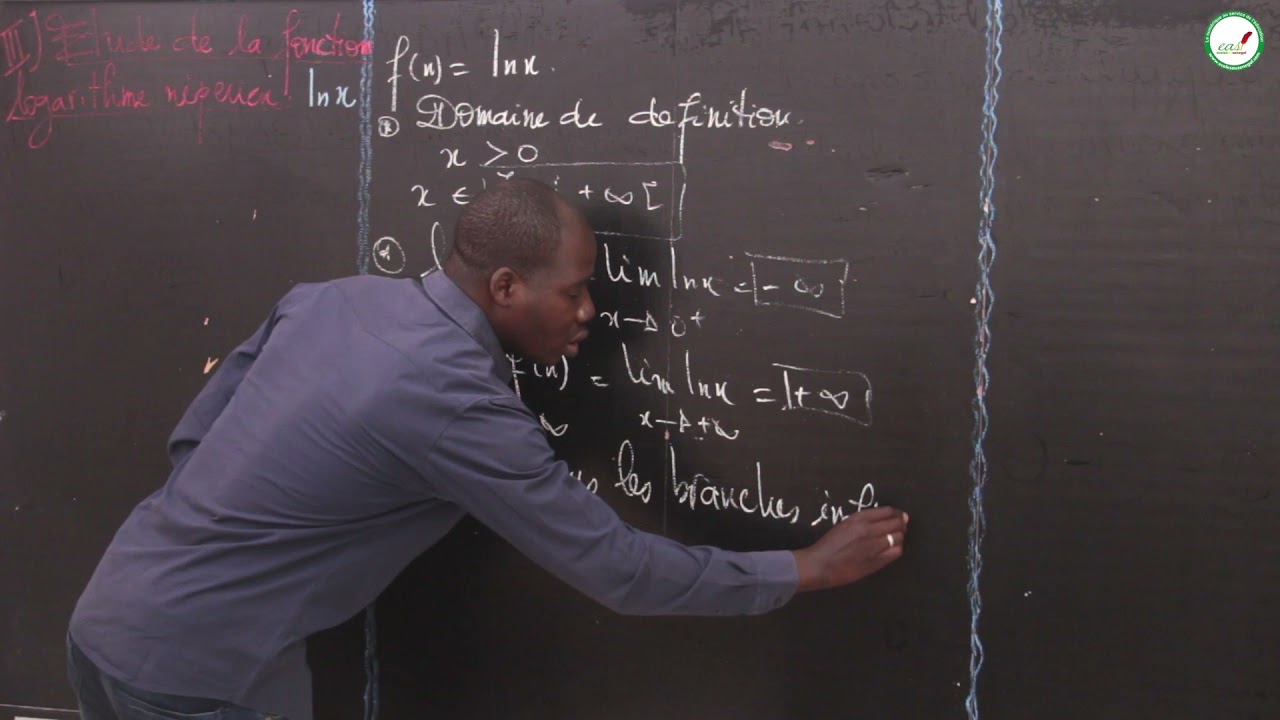 III) Etude de la fonction
logarithme néperien: ln x
f(x) = ln x.
Domaine de definition.
x > 0
x ∈ + ∞ [
lim ln x = - ∞
x → 0+
f(x) = lim ln x = + ∞
∞ x → + ∞
les branches inf
eas!